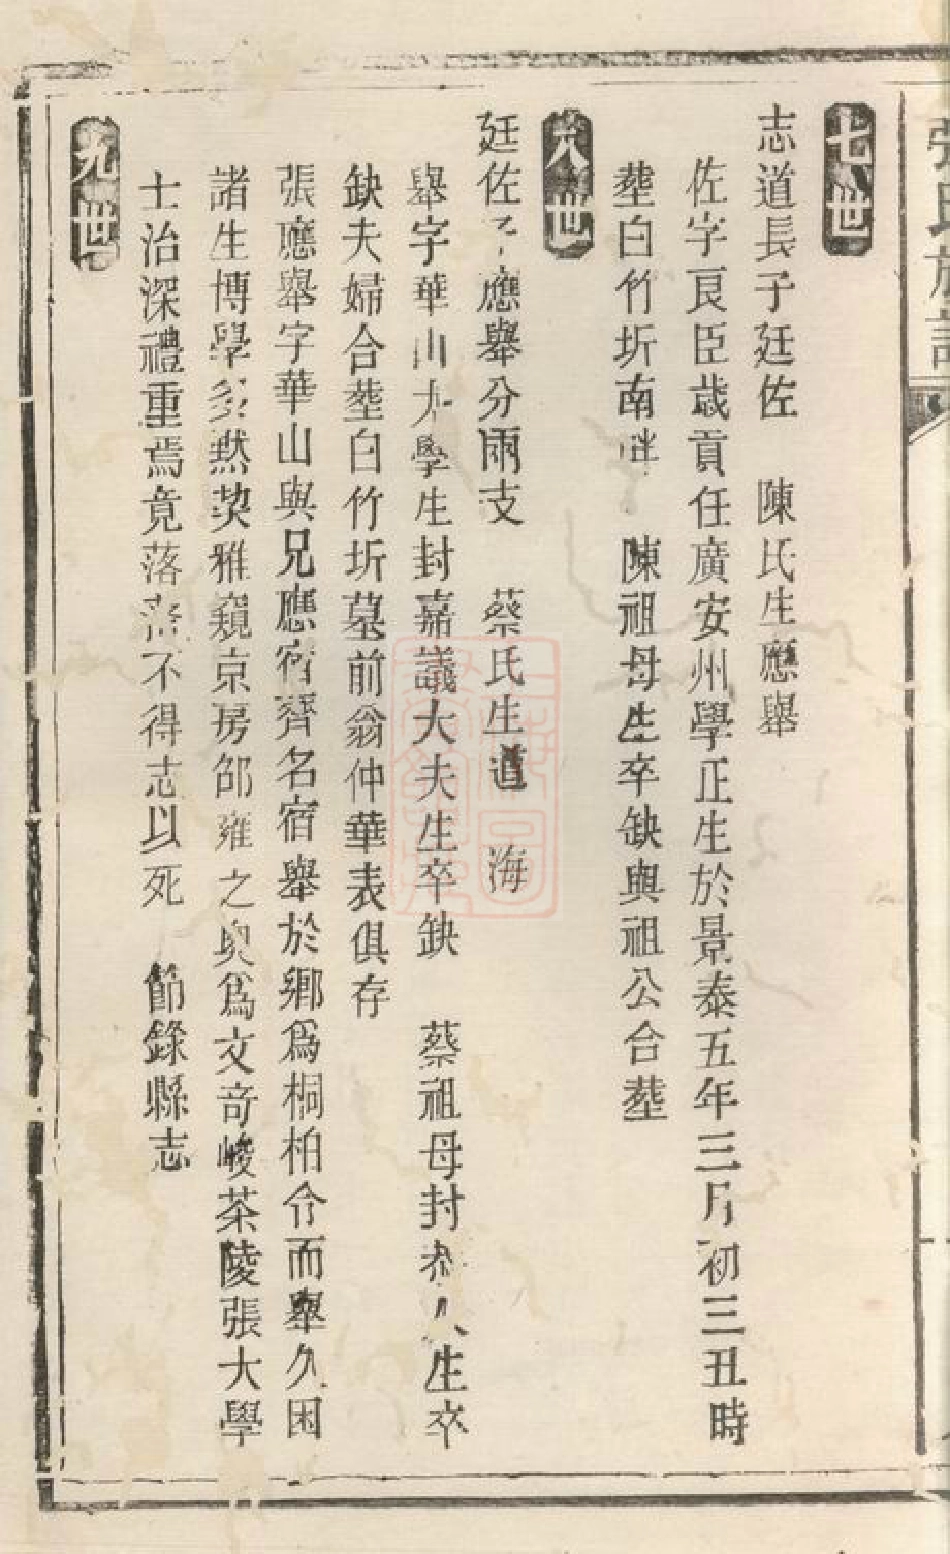 張氏族譜
七世
志道長子廷佐　陳氏生應舉
佐字良臣歲貢任廣安州學正生於景泰五年三月初三丑時
塟白竹圻南畔　陳祖母生卒缺與祖公合塟
八世
廷佐子應舉分兩支　蔡氏生道　海
舉字華山大學生封嘉議大夫生卒缺　蔡祖母封恭人生卒
缺夫婦合塟白竹圻墓前翁仲華表俱存
張應舉字華山與兄應宿齊名宿舉於鄉爲桐柏令而舉久困
諸生博學多黙契雅窺京房邵雍之奥爲文奇峻茶陵張大學
士治深禮重焉竟落落不得志以死　節錄縣志
九世